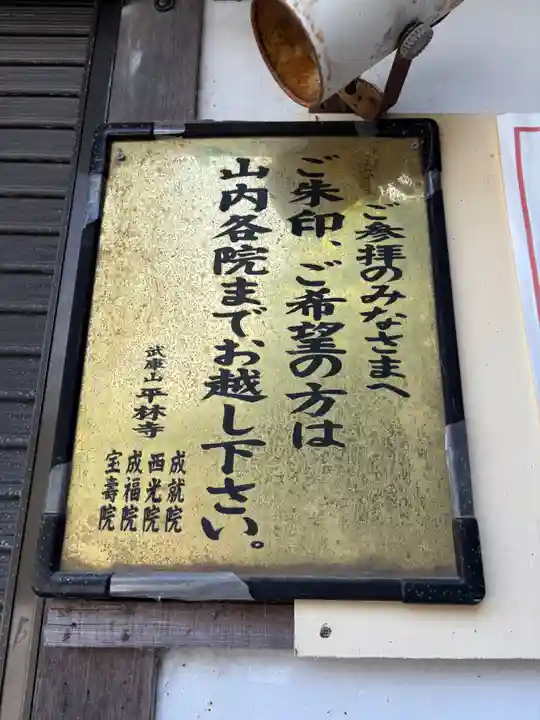 ご参拝のみなさまへ
ご朱印、ご希望の方は
山内各院までお越し下さい。
武庫山平林寺
成就院
西光院
成福院
宝壽院